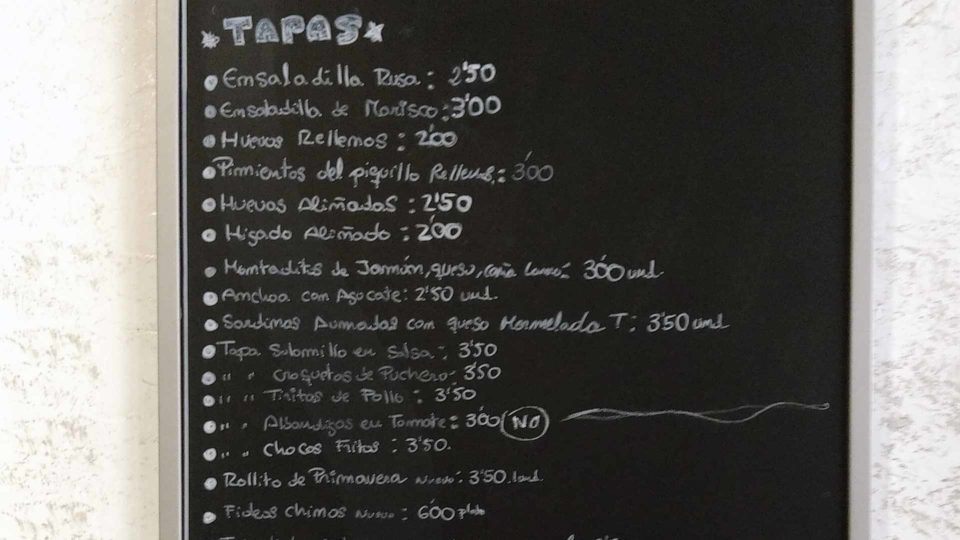 TAPAS
Ensaladilla Rusa: 2'50
Ensaladilla de Marisco: 3'00
Huevos Rellenos: 2'00
Pimientos del piquillo Rellenos: 3'00
Huevos Aliñados: 2'50
Higado Aliñado: 2'00
Montaditos de Jamón, queso, caña lomo: 3'00 und.
Anchoa con Agucate: 2'50 und.
Sardinas Aumadas con queso Mermelada T: 3'50 und
Tapa Solomillo en Salsa: 3'50
" " Croquetas de Puchero: 3'50
" " Tiritas de Pollo: 3'50
" " Albondigas en Tomate: 3'00 NO
" " Chocos Fritos: 3'50.
Rollito de Primavera nuevo: 3'50. und.
Fideos Chinos nuevo: 6'00 plato